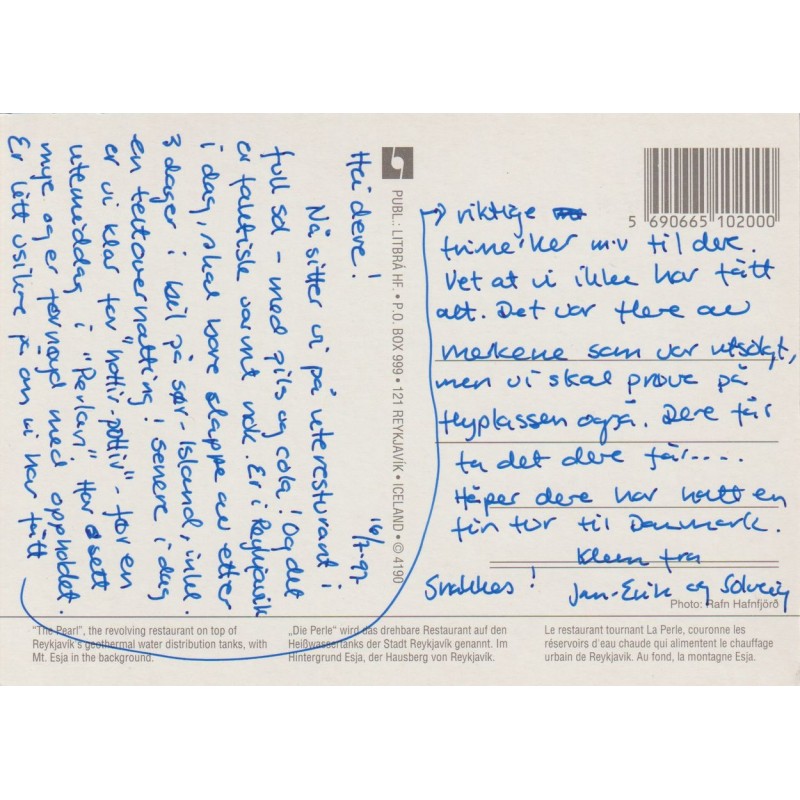 16/7-97
Hei dere!
Nå sitter vi på uteresturant i
full sol - med pils og cola! Og det
er faktisk varmt nok. Er i Reykjavik
i dag, skal bare slappe av etter
3 dager i bil på sør-Island, inkl.
en teltovernatting! Senere i dag
er vi klar for "hottiv-pottiv" - før en
utemiddag i "Perlan". Har sett
mye og er fornøyd med oppholdet.
Er litt usikre på om vi har fått
→ viktige
frimerker m.v til dere.
Vet at vi ikke har fått
alt. Det var flere av
merkene som var utsolgt,
men vi skal prøve på
flyplassen også. Dere får
ta det dere får....
Håper dere har hatt en
fin tur til Danmark.
Klem fra
Snakkes! Jan-Erik og Solveig
PUBL.: LITBRÁ HF. • P.O. BOX 999 • 121 REYKJAVÍK • ICELAND • © 4190
5 690665 102000
Photo: Rafn Hafnfjörð
"The Pearl", the revolving restaurant on top of
Reykjavík's geothermal water distribution tanks, with
Mt. Esja in the background.
„Die Perle" wird das drehbare Restaurant auf den
Heißwassertanks der Stadt Reykjavík genannt. Im
Hintergrund Esja, der Hausberg von Reykjavík.
Le restaurant tournant La Perle, couronne les
réservoirs d'eau chaude qui alimentent le chauffage
urbain de Reykjavík. Au fond, la montagne Esja.